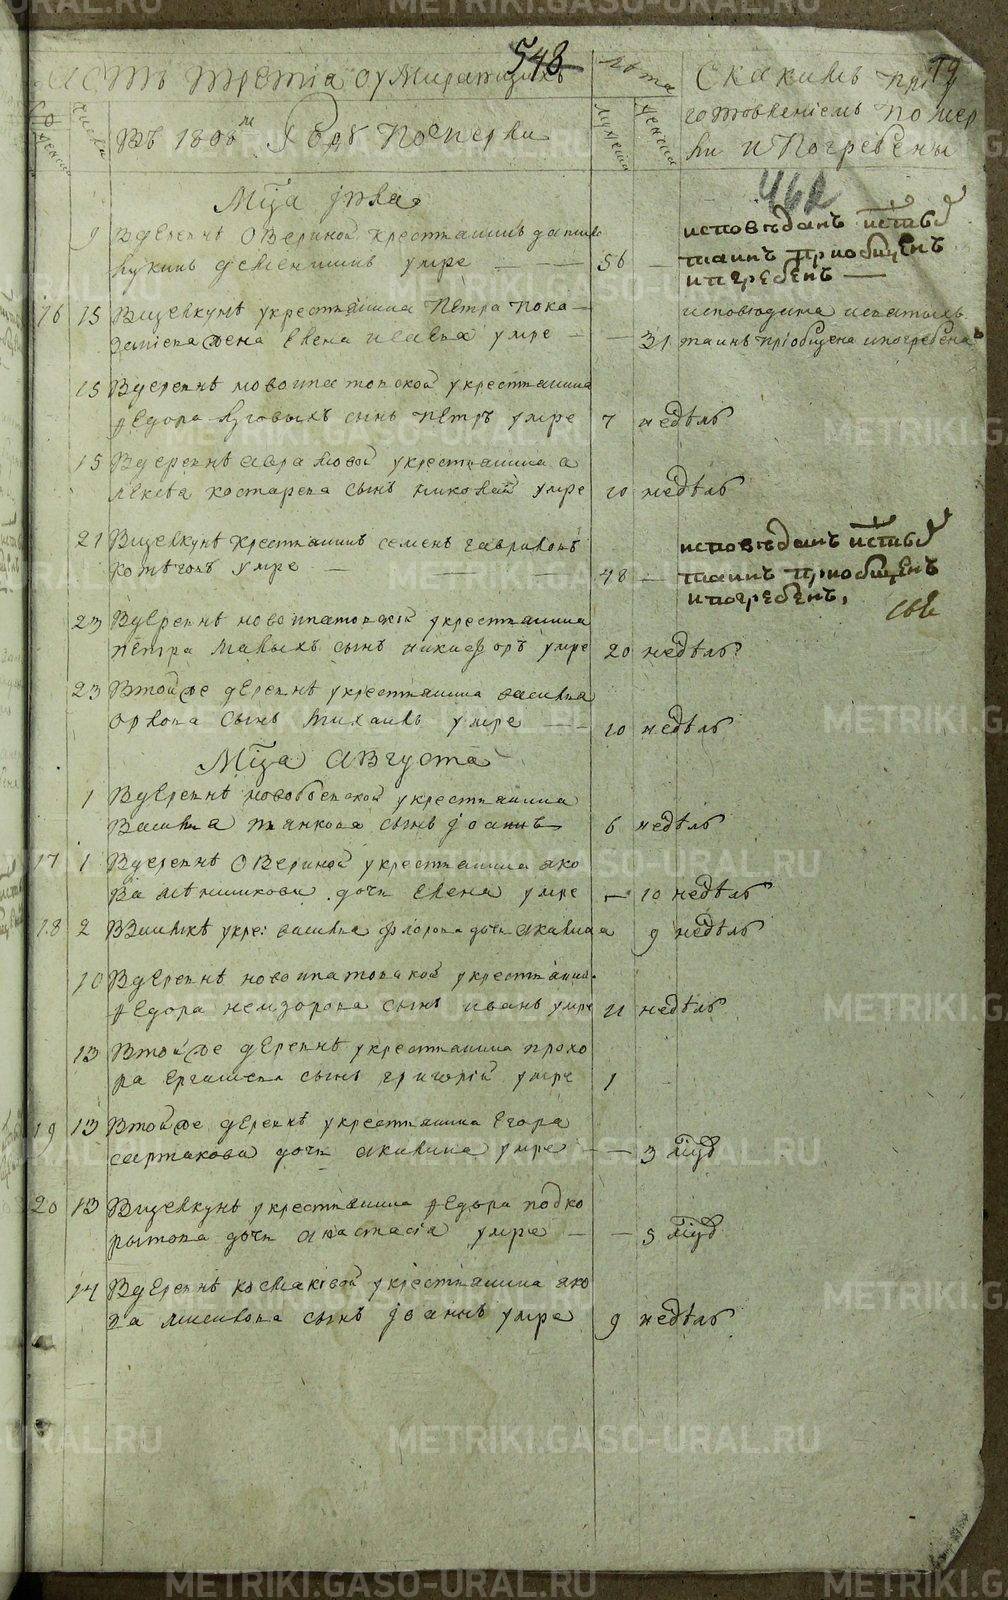 543
19
асть третiа оумирающихъ
лѣта
Скакимъ при
готовленiемъ помер
ли и Погребены
Въ 1808м Году Померли
женска
числа
мужеска
женска
462
Мца Iюля
9 Вдеревнѣ Озериной крестьянинъ данило
лукинъ умре — 56 —
исповѣданъ исты
таинъ приобщенъ
ипогребенъ —
16 15 Вщелкунѣ укрестьянина Петра пока
жена Елена умре — — 31
исповѣдана исвятыхъ
таинъ прiобщена ипогребена
15 Вдеревнѣ новоипатовской укрестьянина
федора Луговыхъ сынъ Петръ умре 7 недѣль
15 Вдеревнѣ аврамовой укрестьянина а
лексѣа костарева сынъ николай умре 10 недѣль
21 Вщелкунѣ крестьянинъ семенъ гавриловъ
умре — 48 —
исповѣданъ исты
таинъ приобщенъ
ипогребенъ,
23 Вдеревнѣ новоипатовской укрестьянина
петра Малыхъ сынъ никифоръ умре 20 недѣль
23 Втойже деревнѣ укрестьянина василья
орлова сынъ михаилъ умре — 10 недѣль
Мца Августа
1 Вдеревнѣ укрестьянина
Василья панкова сынъ Iоаннъ 6 недѣль
17 1 Вдеревнѣ Озериной укрестьянина яко
ва мѣншикова дочь Елена умре — 10 недѣль
18 2 укре: василья флорова дочь акилина 9 недѣль
10 Вдеревнѣ новоипатовской укрестьянина
федора немзорова сынъ иванъ умре 11 недѣль
13 Втойже деревнѣ укрестьянина прохо
ра сынъ григорiй умре 1
19 13 Втойже деревнѣ укрестьянина Егора
сартакова дочь акилина умре — — 3 мцъ
20 13 Вщелкунѣ укрестьянина федора подко
рытова дочь анастасiя умре — — 5 мцъ
14 Вдеревнѣ космаковой укрестьянина яко
ва мисилова сынъ Iоаннъ умре 9 недѣль
METRIKI.GASO-URAL.RU